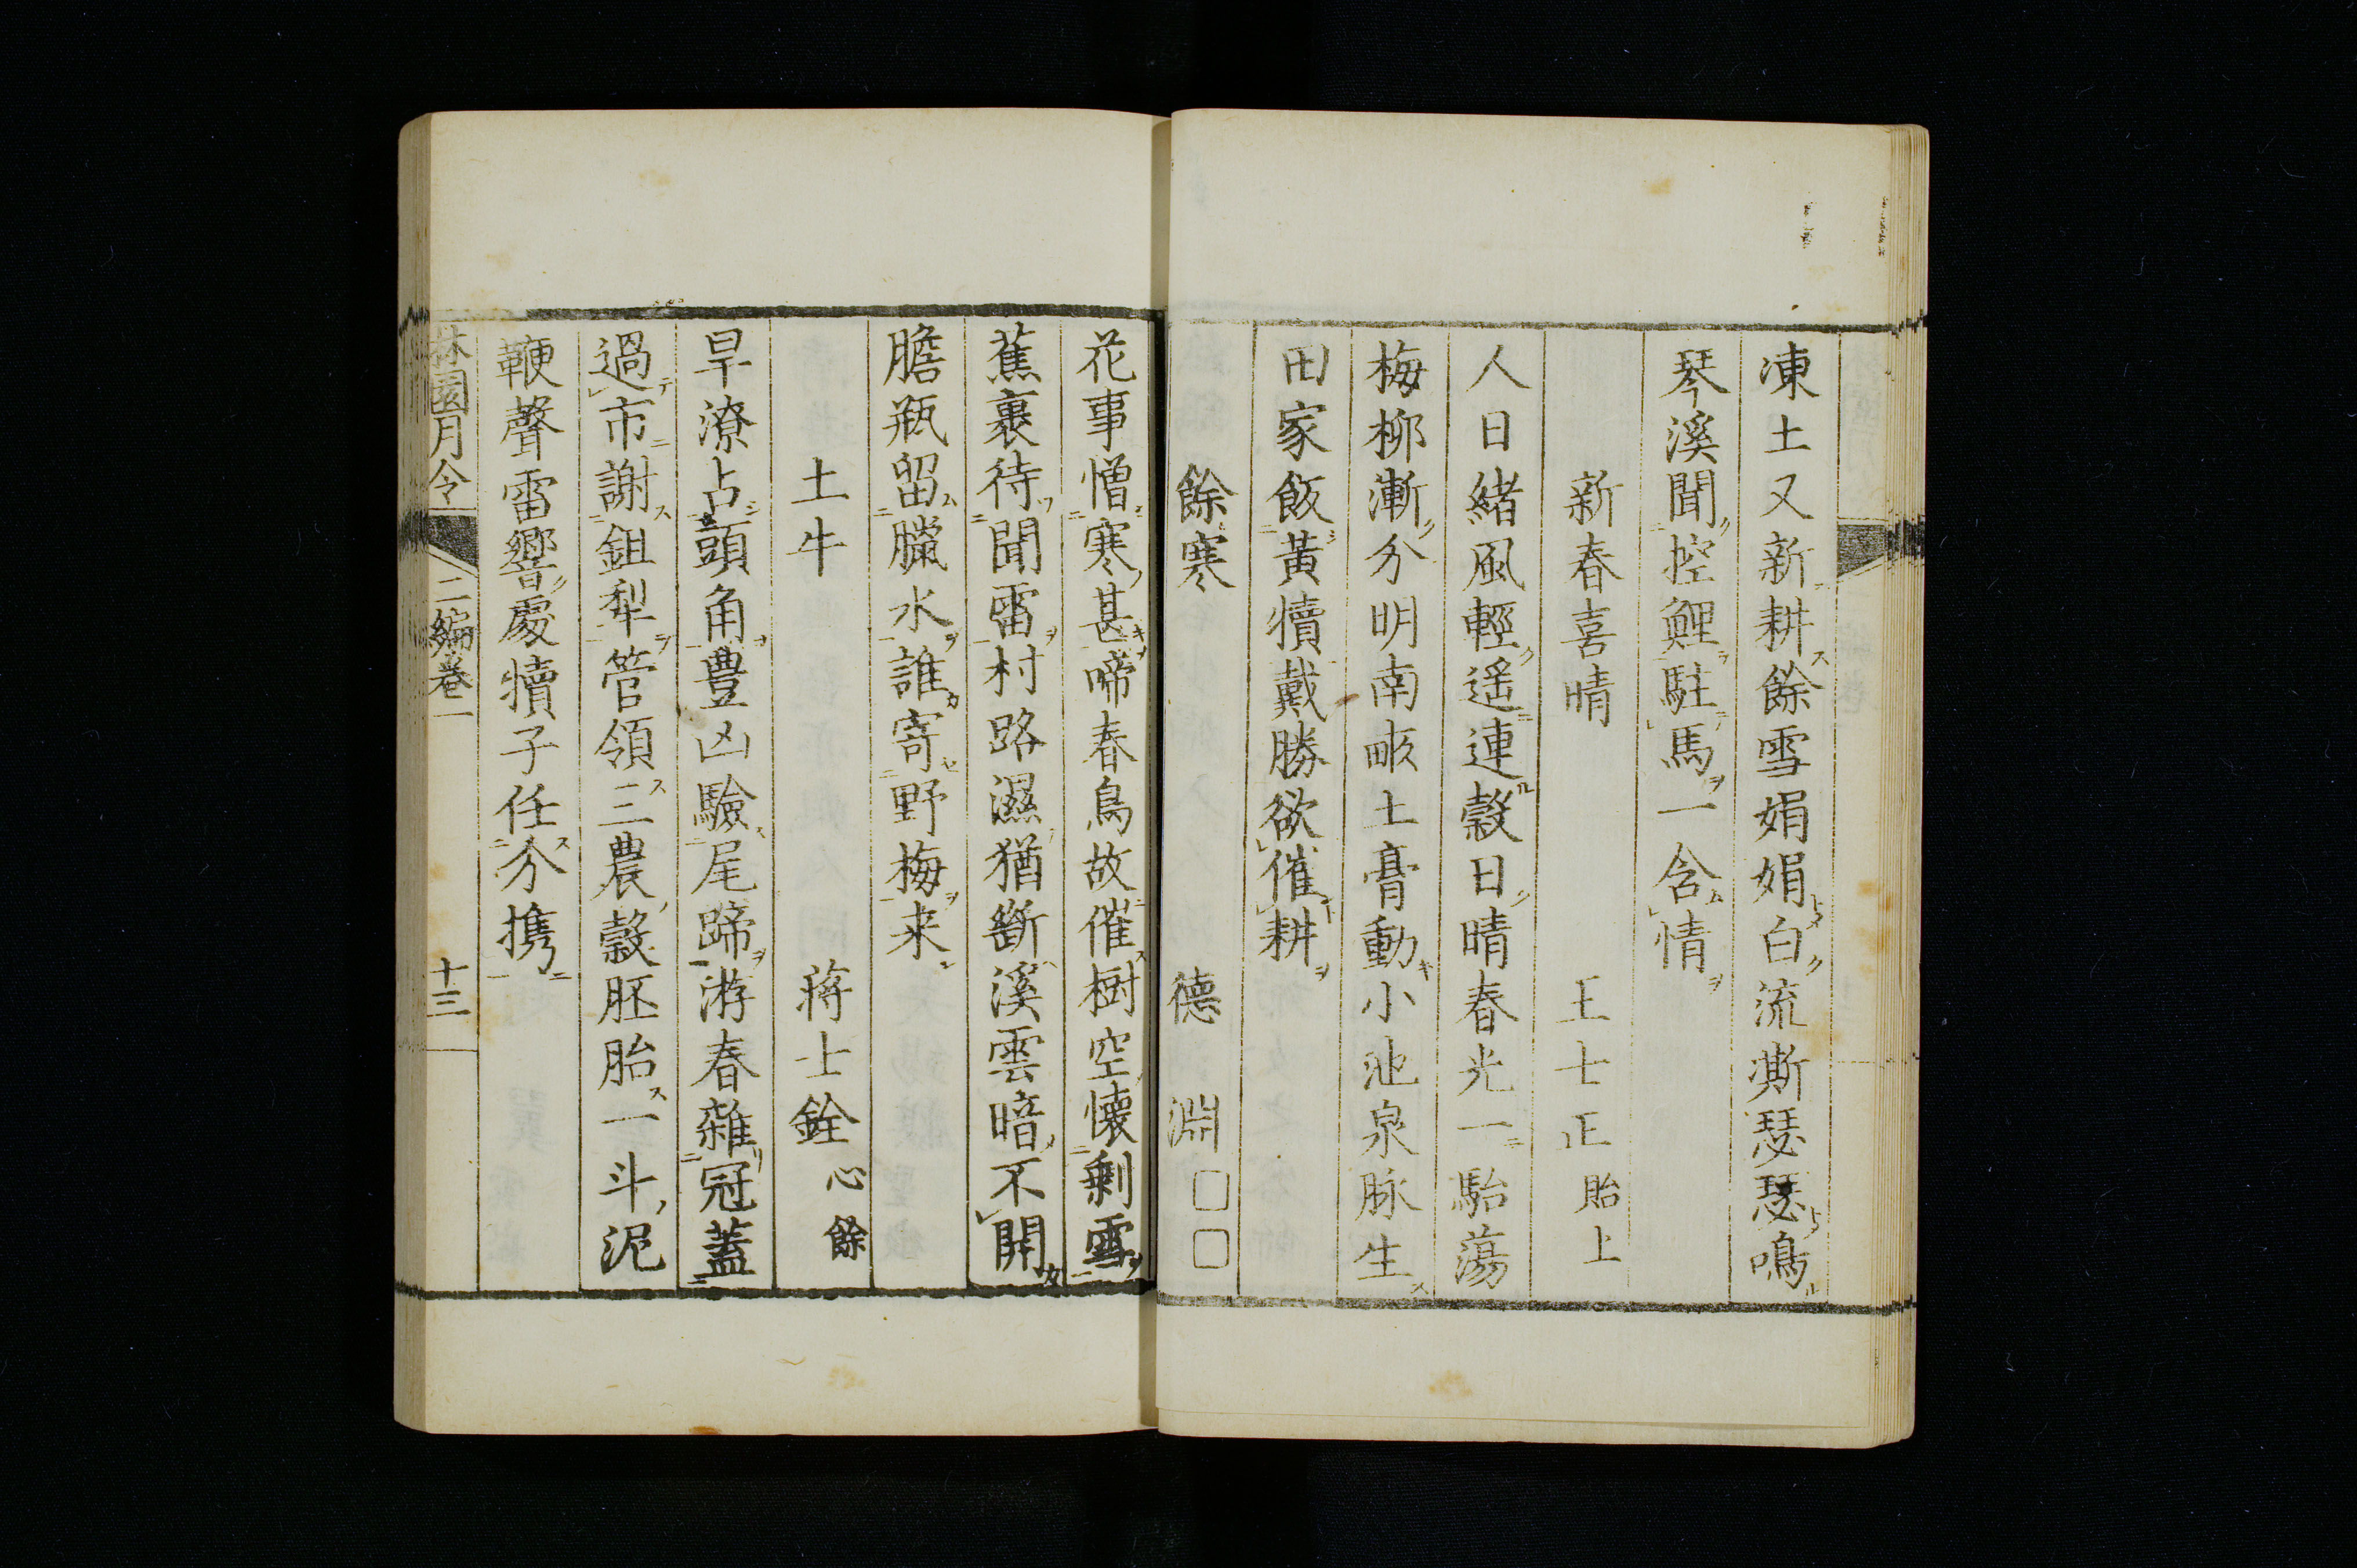 凍土又新耕餘雪娟娟白流澌瑟瑟鳴
琴溪聞控鯉駐馬一含情
新春喜晴 王士正 貽上
人日緒風輕遙連穀日晴春光一駘蕩
梅柳漸分明南畝土膏動小池泉脉生
田家飯黃犢戴勝欲催耕
餘寒 德淵□□
花事憎寒甚啼春鳥故催樹空懷剩雪
蕉裹待聞雷村路濕猶斷溪雲暗不開
膽瓶留臘水誰寄野梅来
土牛 蔣士銓 心餘
旱潦占頭角豊凶驗尾蹄游春雜冠蓋
過市謝鉏犁管領三農穀胚胎一斗泥
鞭聲雷響處犢子任分携
林園月令 二編卷一 十三